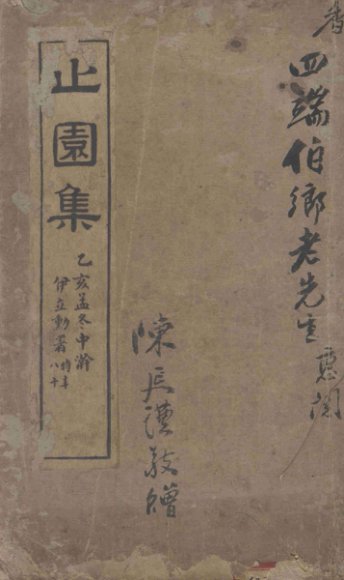 四端伯鄉老先生惠閱
陳長謹敬贈
止園集
乙亥孟冬中澣
伊立勳署時年
八十